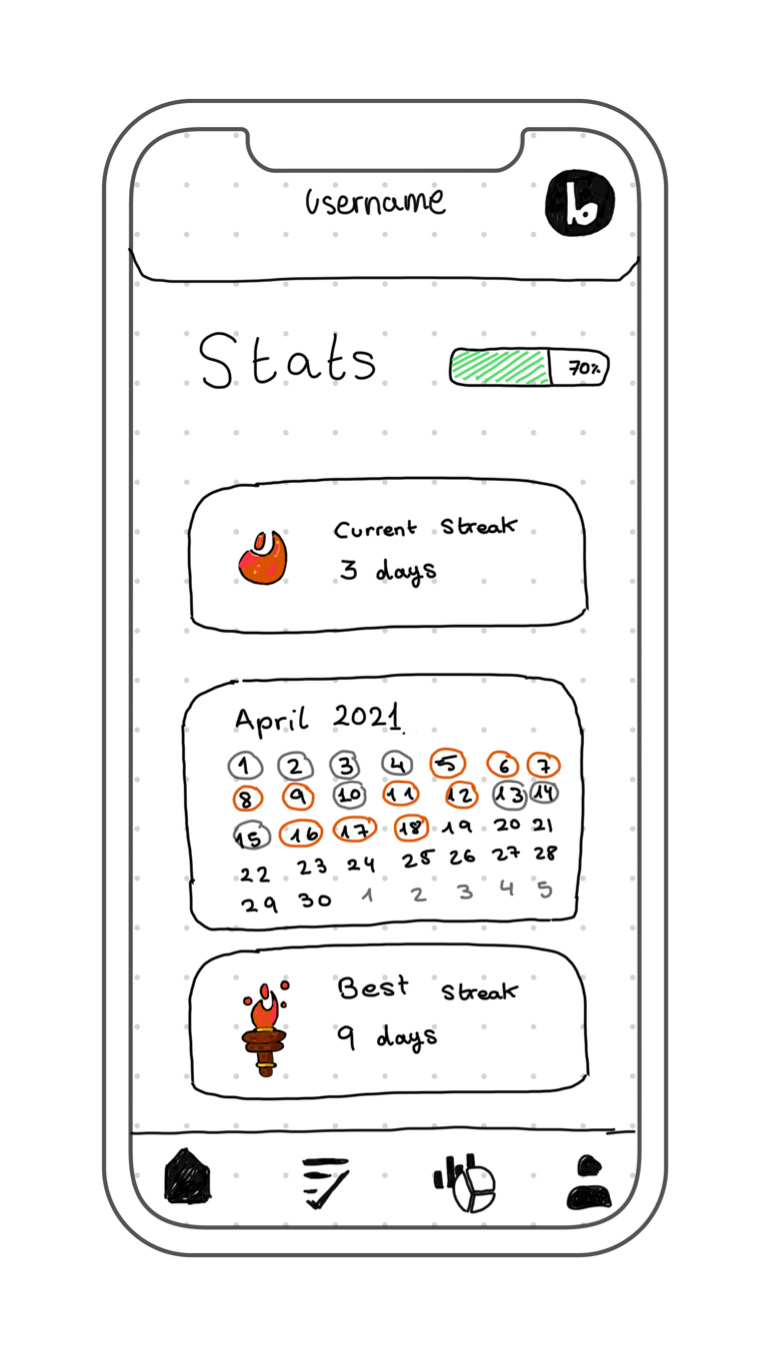 Username
b
Stats
70%
Current Streak
3 days
April 2021
1 2 3 4 5 6 7
8 9 10 11 12 13 14
15 16 17 18 19 20 21
22 23 24 25 26 27 28
29 30 1 2 3 4 5
Best Streak
9 days